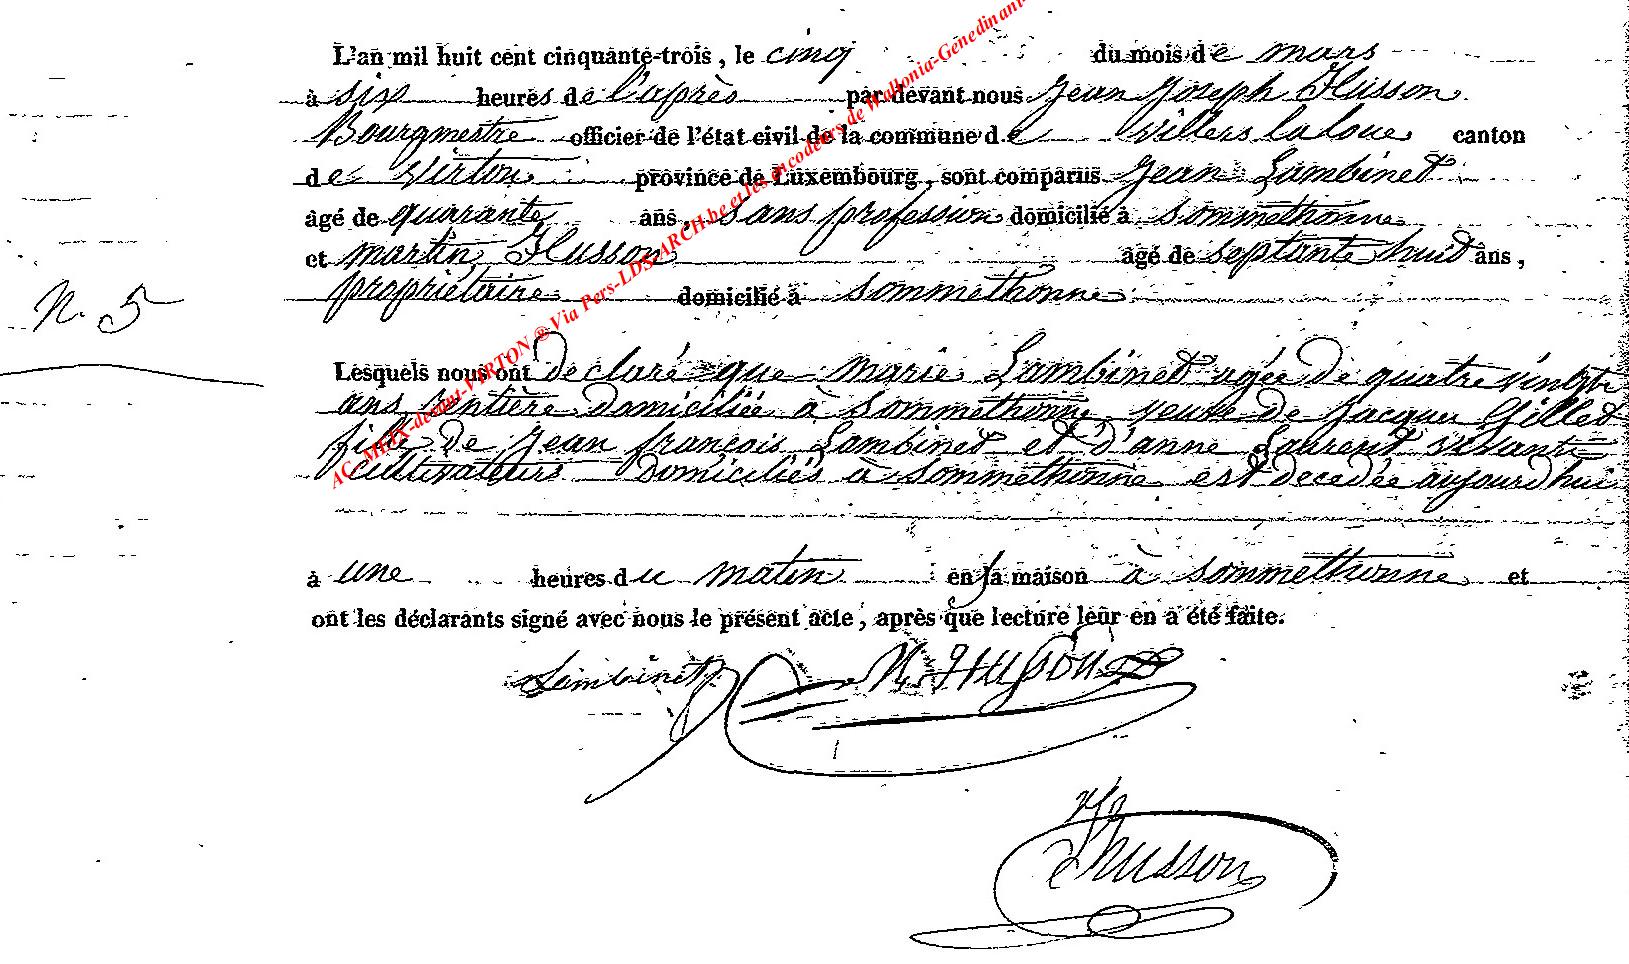 L'an mil huit cent cinquante-trois, le cinq du mois de mars
à six heures de l'après par devant nous Jean Joseph Husson
Bourgmestre officier de l'état civil de la commune de Villers la loue canton
de Virton province de Luxembourg, sont comparus Jean Lambinet
âgé de quarante ans, sans profession domicilié à Sommethonne
et martin Husson âgé de septante huit ans,
propriétaire domicilié à Sommethonne
N. 5
Lesquels nous ont déclaré que marie Lambinet agée de quatre vingt
ans rentière domiciliée à Sommethonne veuve de Jacques Gillet
fille de Jean françois Lambinet et d'anne Laurent vivant
cultivateurs domiciliés à Sommethonne est decedée aujourd'hui
à une heures du matin en sa maison à Sommethonne et
ont les déclarants signé avec nous le présent acte, après que lecture leur en a été faite.
Lambinet M. HUSSON
Husson
AC MEIX-devant-VIRTON ® Via Pers-LDS-ARCH.be et les encodeurs de Wallonia-Genedinant